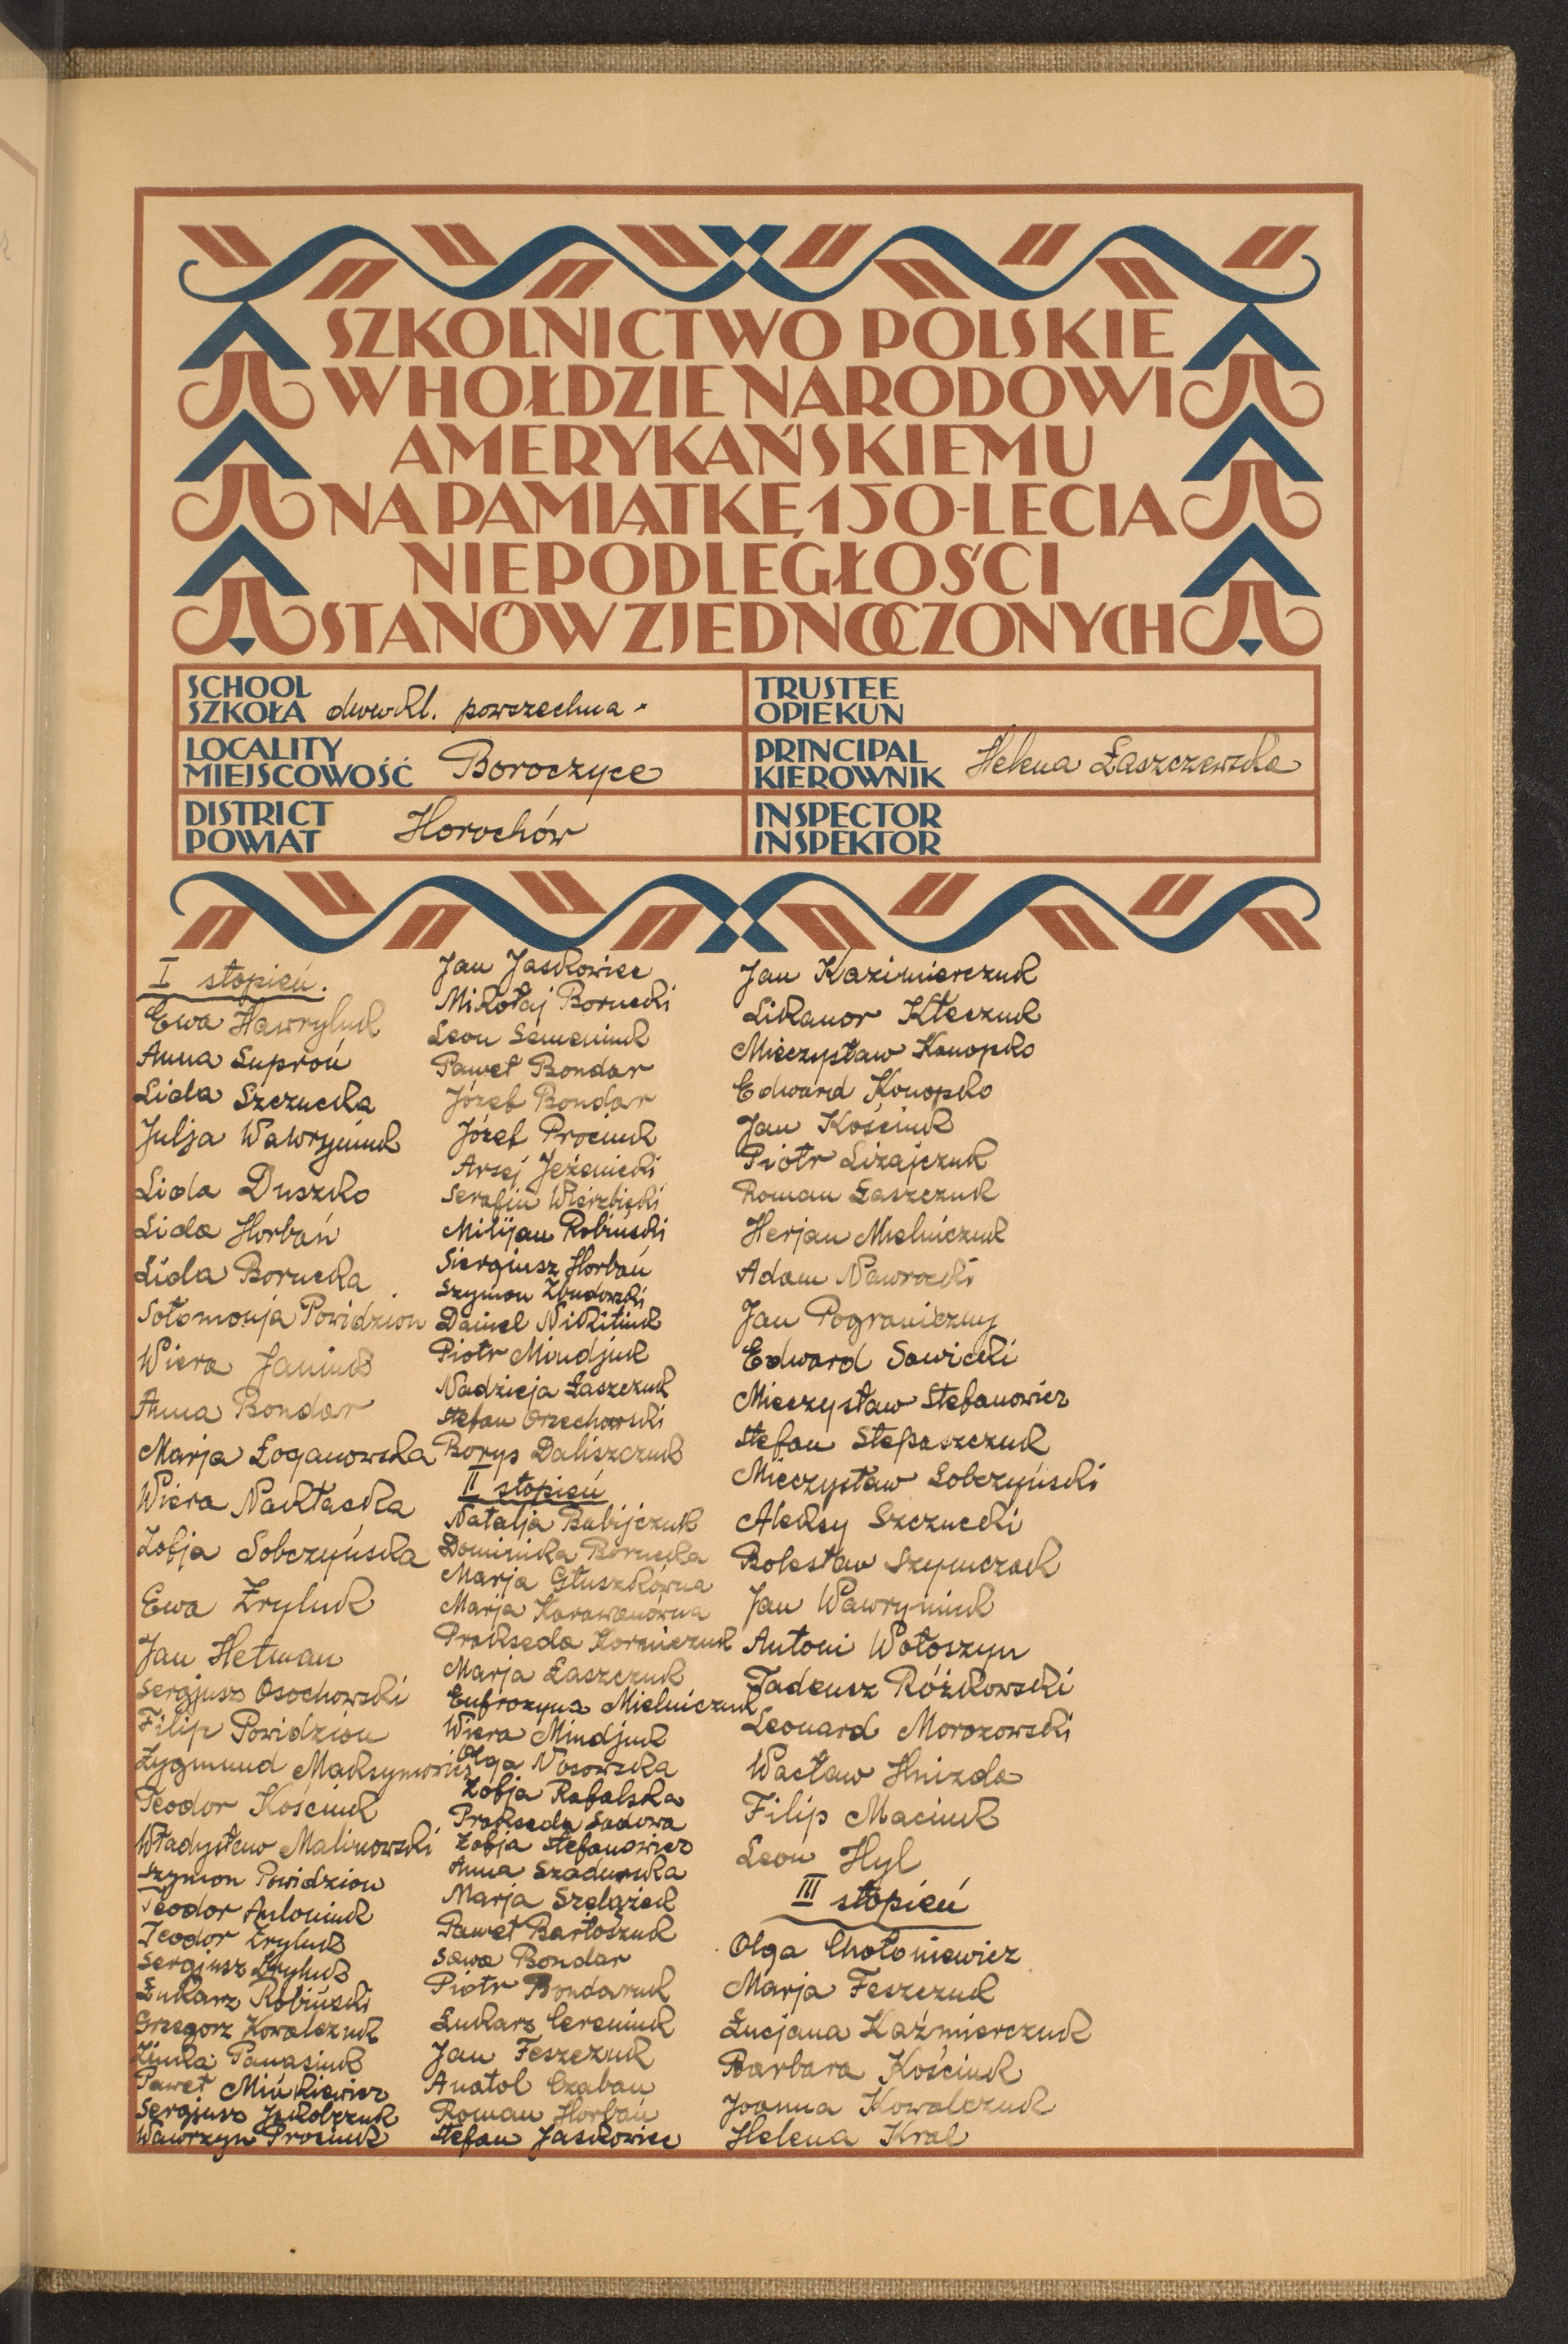 SZKOLNICTWO POLSKIE
W HOŁDZIE NARODOWI
AMERYKAŃSKIEMU
NA PAMIĄTKĘ 150-LECIA
NIEPODLEGŁOŚCI
STANÓW ZJEDNOCZONYCH
SCHOOL
SZKOŁA dwukl. powszechna
LOCALITY
MIEJSCOWOŚĆ Boroczyce
DISTRICT
POWIAT Horochów
TRUSTEE
OPIEKUN
PRINCIPAL
KIEROWNIK Helena Łaszczewska
INSPECTOR
INSPEKTOR
I stopień.
Ewa Hawryluk
Anna Suproń
Lida Szczucka
Julja Wawryniuk
Lida Duszko
Lida Horbań
Lida Borucka
Sołomonja Powidzion
Wiera Janiuk
Anna Bondar
Marja Łoganowska
Wiera Nakłacka
Zofja Sobczyńska
Ewa Zryluk
Jan Hetman
Sergjusz Osochowski
Filip Powidzion
Zygmund Maksymowicz
Teodor Kościuk
Władysław Malinowski
Szymon Powidzion
Teodor Antoniuk
Teodor Zryluk
Sergjusz Zryluk
Łukarz Robiński
Grzegorz Kowalczuk
Zinka Panasiuk
Paweł Mińkiewicz
Sergjusz Jakobczuk
Wawrzyn Prociuk
Jan Jaskowiec
Mikołaj Borucki
Leon Semeniuk
Paweł Bondar
Józef Bondar
Józef Prociuk
Arsej Jeżenicki
Serafin Wierzbicki
Milijan Robiński
Siergiusz Horbań
Szymon Zbudowski
Daniel Nikitiuk
Piotr Mindjuk
Nadzieja Łaszczuk
Stefan Orzechowski
Borys Daliszczuk
II stopień
Natalja Babijczuk
Dominika Borucka
Marja Głuszkówna
Marja Karawanówna
Prakseda Korniczuk
Marja Łaszczuk
Eufrozyna Mielniczuk
Wiera Mindjuk
Olga Nosowska
Zofja Rafalska
Prakseda Sadowa
Zofja Stefanowicz
Anna Szadurska
Marja Szelążek
Paweł Bartoszuk
Sawa Bondar
Piotr Bondaruk
Łukarz Cereniuk
Jan Feszczuk
Anatol Czaban
Roman Horbań
Stefan Jaskowiec
Jan Kazimierczuk
Likanor Kłeczuk
Mieczysław Konopko
Edward Konopko
Jan Kościuk
Piotr Liżajczuk
Roman Łaszczuk
Herjan Mielniczuk
Adam Nawrocki
Jan Pograniczny
Edward Sawicki
Mieczysław Stefanowicz
Stefan Stepaszczuk
Mieczysław Sobczyński
Aleksy Szczucki
Bolesław Szymczak
Jan Wawryniuk
Antoni Wołoszyn
Tadeusz Różkowski
Leonard Morozowski
Wacław Hnizda
Filip Maciuk
Leon Hyl
III stopień
Olga Chołoniewicz
Marja Feszczuk
Łucjana Kaźmierczuk
Barbara Kościuk
Joanna Kowalczuk
Helena Kral